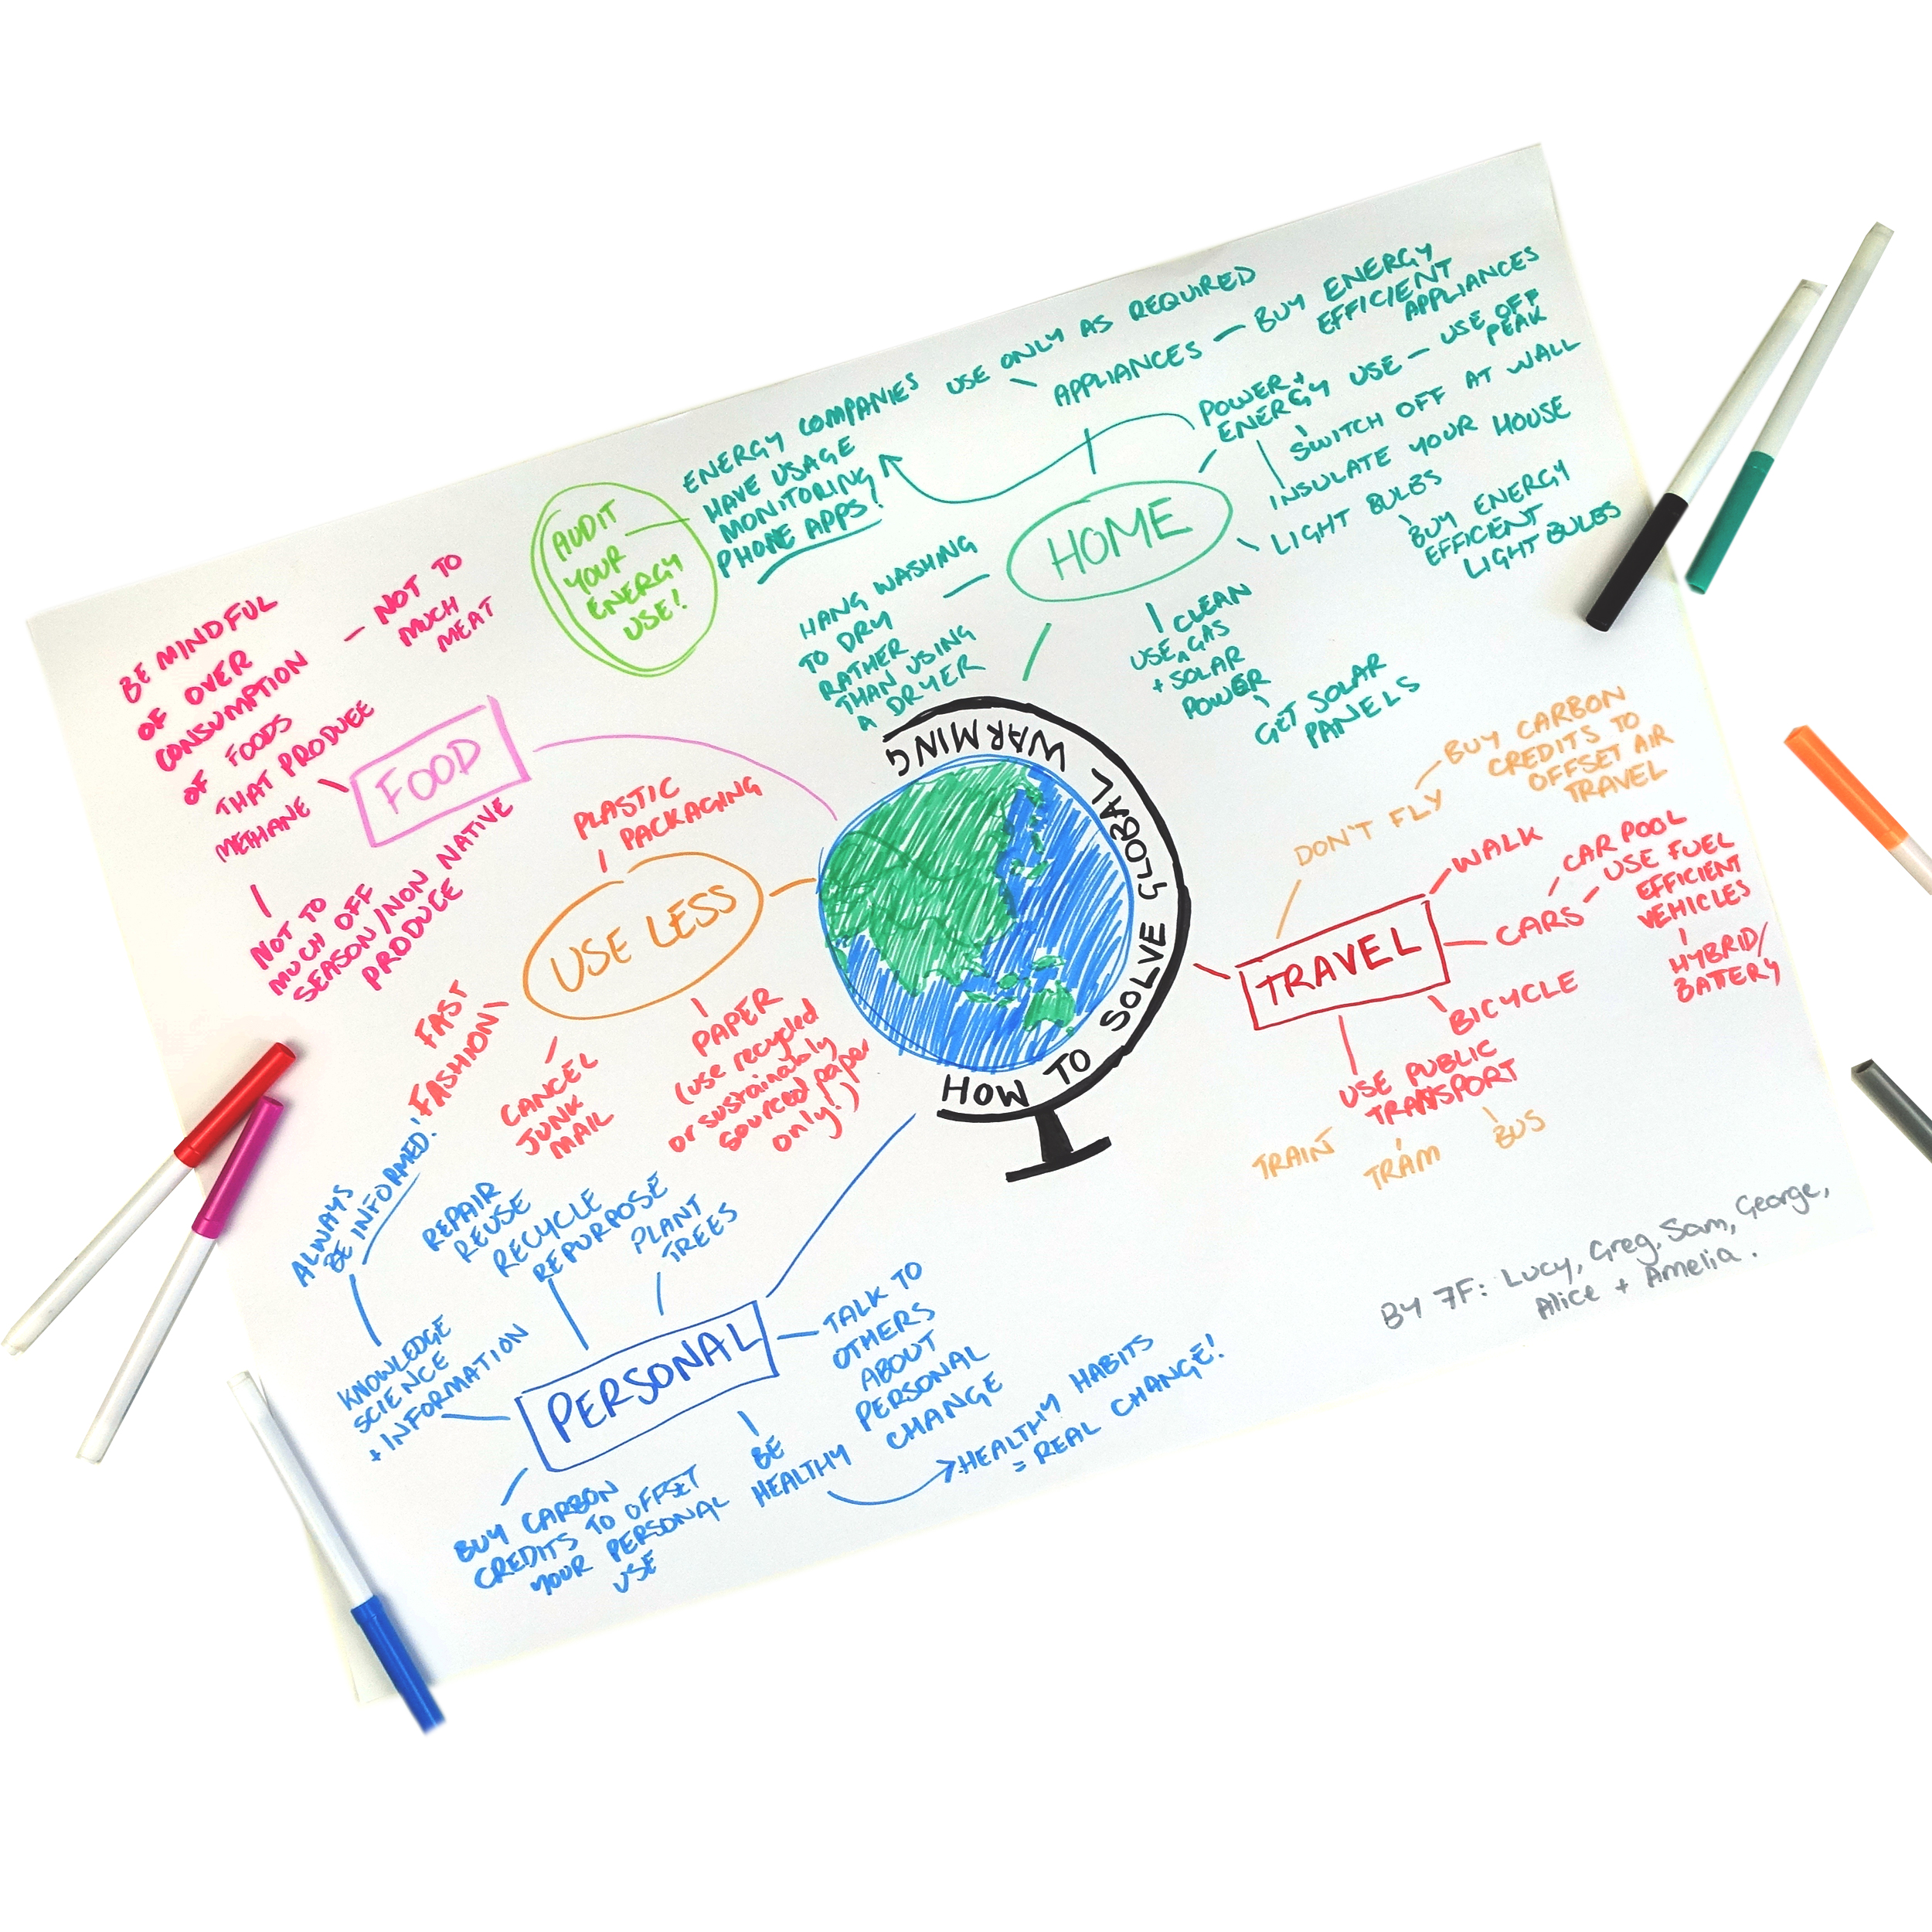 HOW TO SOLVE GLOBAL WARMING
HOME
USE ONLY AS REQUIRED
APPLIANCES
BUY ENERGY
EFFICIENT
APPLIANCES
POWER +
ENERGY USE
USE OFF
PEAK
SWITCH OFF AT WALL
INSULATE YOUR HOUSE
LIGHT BULBS
BUY ENERGY
EFFICIENT
LIGHT BULBS
CLEAN
USE GAS
+ SOLAR
POWER
GET SOLAR
PANELS
HANG WASHING
TO DRY
RATHER
THAN USING
A DRYER
ENERGY COMPANIES
HAVE USAGE
MONITORING
PHONE APPS!
AUDIT
YOUR
ENERGY
USE!
FOOD
BE MINDFUL
OF OVER
CONSUMPTION
OF FOODS
THAT PRODUCE
METHANE
NOT TO
MUCH
MEAT
NOT TO
MUCH OFF
SEASON/NON NATIVE
PRODUCE
USE LESS
PLASTIC
PACKAGING
FAST
FASHION
CANCEL
JUNK
MAIL
PAPER
(use recycled
or sustainably
sourced paper
only!)
TRAVEL
DON'T FLY
BUY CARBON
CREDITS TO
OFFSET AIR
TRAVEL
WALK
CARS
CAR POOL
USE FUEL
EFFICIENT
VEHICLES
HYBRID/
BATTERY
BICYCLE
USE PUBLIC
TRANSPORT
TRAIN
TRAM
BUS
PERSONAL
ALWAYS
BE INFORMED!
KNOWLEDGE
SCIENCE
+ INFORMATION
REPAIR
REUSE
RECYCLE
REPURPOSE
PLANT
TREES
TALK TO
OTHERS
ABOUT
PERSONAL
CHANGE
BE
HEALTHY
HEALTHY HABITS
= REAL CHANGE!
BUY CARBON
CREDITS TO OFFSET
YOUR PERSONAL
USE
BY 7F: Lucy, Greg, Sam, George,
Alice + Amelia.